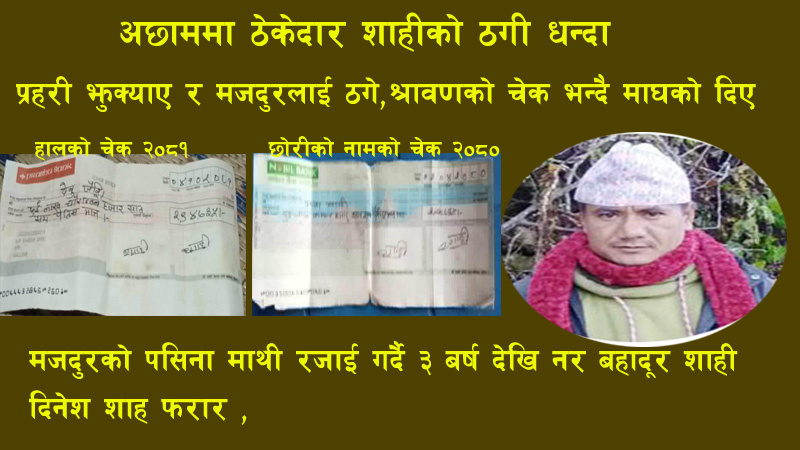 अछाममा ठेकेदार शाहीको ठगी धन्दा
प्रहरी झुक्याए र मजदुरलाई ठगे,श्रावणको चेक भन्दै माघको दिए
हालको चेक २०८१
छोरीको नामको चेक २०८०
NABIL BANK
मजदुरको पसिना माथी रजाई गर्दै ३ बर्ष देखि नर बहादूर शाही
दिनेश शाह फरार ,